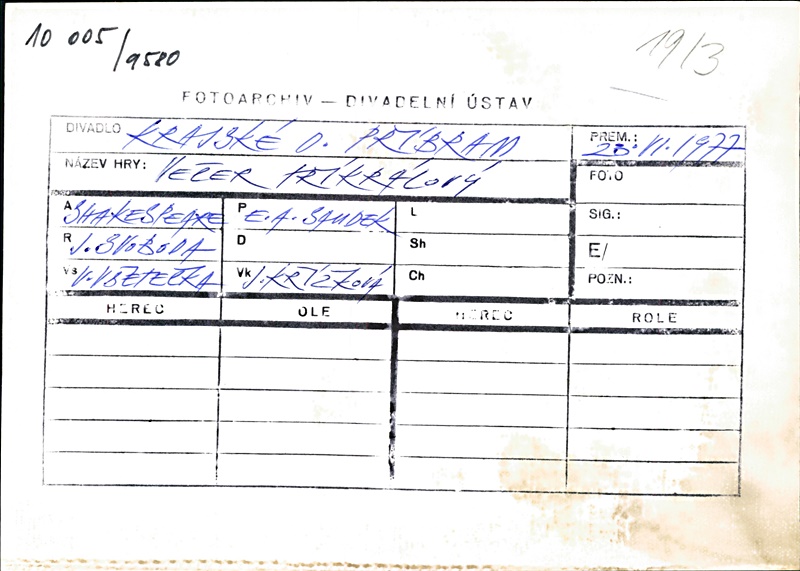 10 005/9580
19/3
FOTOARCHIV — DIVADELNÍ ÚSTAV
DIVADLO KRAJSKÉ D. PŘÍBRAM
PREM.: 23. VI. 1977
NÁZEV HRY: VEČER TŘÍKRÁLOVÝ
FOTO
A SHAKESPEARE P E. A. SAUDEK L SIG.:
R J. SVOBODA D Sh E/
Vs V. VŠETEČKA Vk J. KŘÍŽKOVÁ Ch POZN.:
HEREC OLE HEREC ROLE